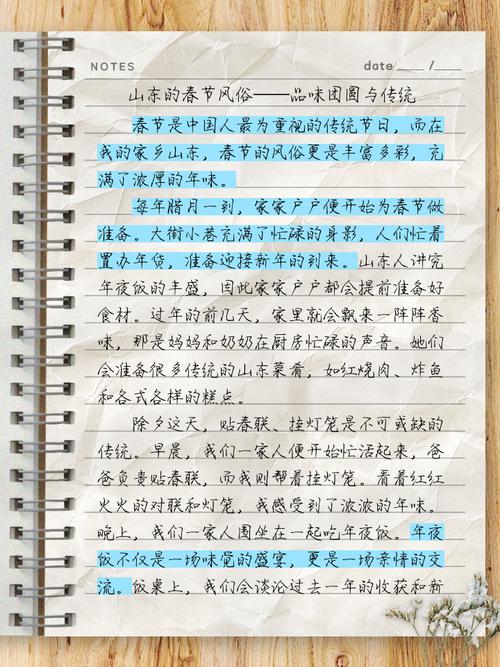 NOTES
date ____ / ____
山东的春节风俗——品味团圆与传统
春节是中国人最为重视的传统节日，而在
我的家乡山东，春节的风俗更是丰富多彩，充
满了浓厚的年味。
每年腊月一到，家家户户便开始为春节做
准备。大街小巷充满了忙碌的身影，人们忙着
置办年货，准备迎接新年的到来。山东人讲究
年夜饭的丰盛，因此家家户户都会提前准备好
食材。过年的前几天，家里就会飘来一阵阵香
味，那是妈妈和奶奶在厨房忙碌的声音。她们
会准备很多传统的山东菜肴，如红烧肉、炸鱼
和各式各样的糕点。
除夕这天，贴春联、挂灯笼是不可或缺的
传统。早晨，我们一家人便开始忙活起来，爸
爸负责贴春联，而我则帮着挂灯笼。看着红红
火火的对联和灯笼，我感受到了浓浓的年味。
晚上，我们一家人围坐在一起吃年夜饭。年夜
饭不仅是一场味觉的盛宴，更是一场亲情的交
流。饭桌上，我们会谈论过去一年的收获和新